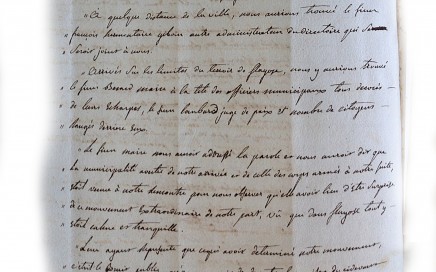 " A quelque distance de la ville, nous aurions trouvé le sieur
" françois honnoraire autre administrateur du directoire qui se
" seroit joint à nous.
" Arrivés sur les limites du terroir de flayosc, nous y aurions trouvé
" le sieur maire à la tête des officiers municipaux tous decorés
" de leurs echarpes, le sieur lambard juge de paix et nombre de citoyens
" rangés derriere eux.
" Le sieur maire nous auroit adressé la parole et nous auroit dit que
" la municipalité avertie de notre arrivée et de celle des corps armés à notre suite,
" etoit venue à notre rencontre pour nous observer qu'elle avoit lieu d'être surprise
" de ce mouvement extraordinaire de notre part, vû que dans flayosc tout y
" etoit calme et tranquille.
" Leur ayant représenté que ce qui avoit determiné notre mouvement,
" c'etoit le public